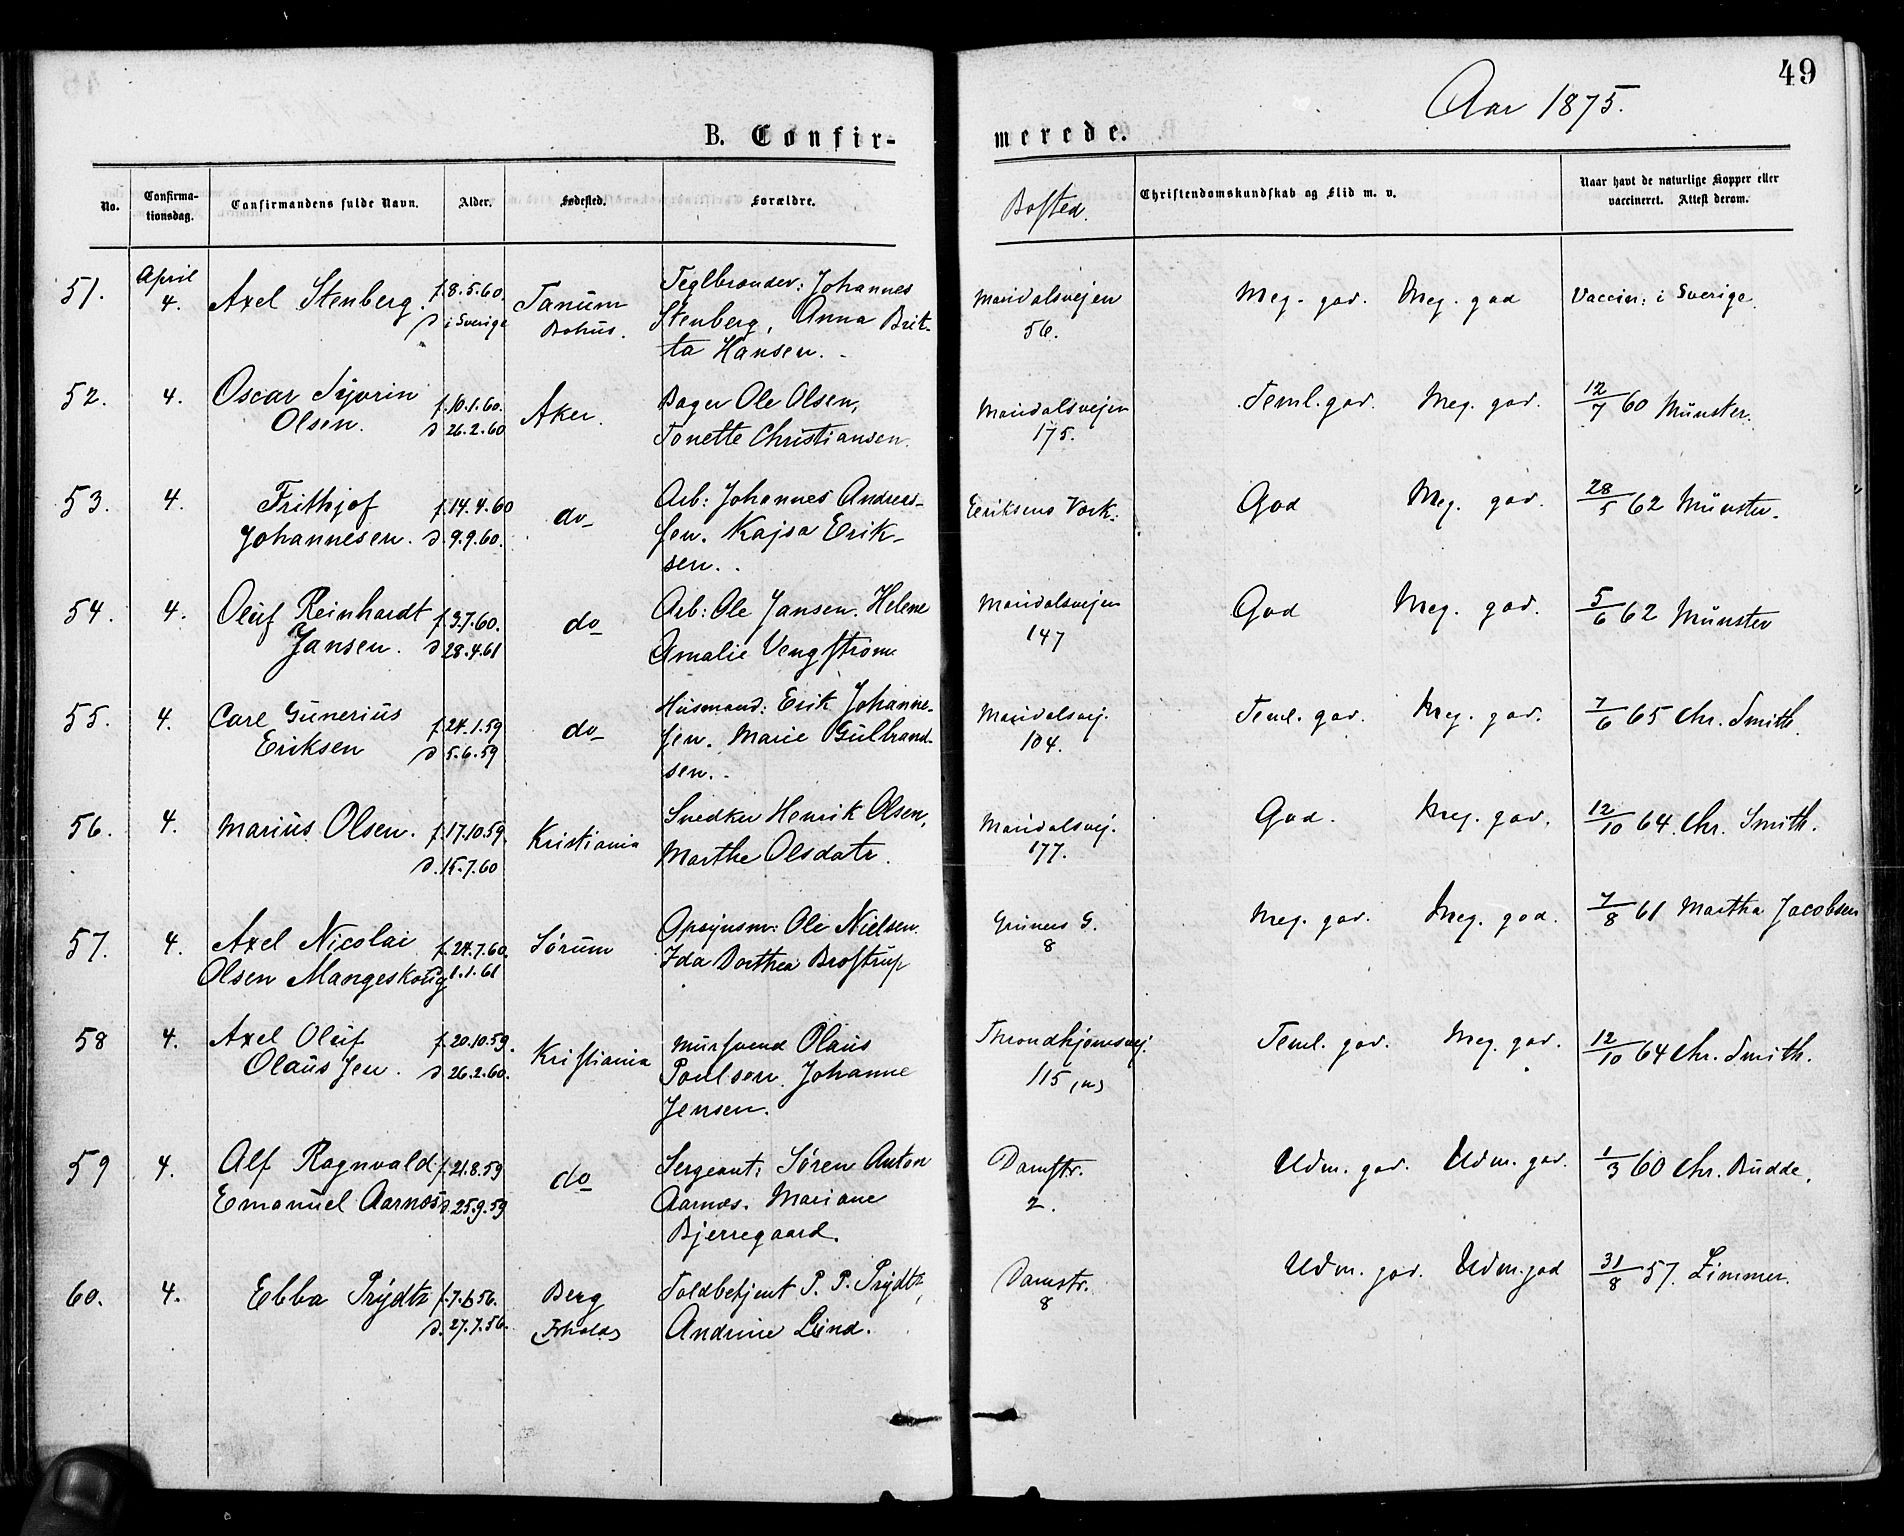 49
Aar 1875.
B. Confir-
merede.
No.
Confirma-
tionsdag.
Confirmandens fulde Navn.
Alder.
Fødested.
Forældre.
Bosted.
Christendomskundskab og Flid m. v.
Naar havt de naturlige Kopper eller
vaccineret. Attest derom.
51. April 4. Axel Stenberg. f. 8.5.60. d. i Sverige Tanum Bohus. Teglbrænder: Johannes
Stenberg, Anna Brit-
ta Hansen.
Maridalsvejen 56. Meg. god. Meg. god Vaccin: i Sverige
52. 4. Oscar Syvrin
Olsen. f. 10.1.60. d. 26.2.60 Aker. Bager Ole Olsen,
Tonette Christiansen.
Maridalsvejen 175. Teml. god. Meg. god. 12/7 60 Münster.
53. 4. Frithjof
Johannesen. f. 14.4.60 d. 9.9.60. do Arb: Johannes Andreas-
sen. Kajsa Erik-
sen.
Eriksens Værk: God Meg. god. 28/5 62 Münster.
54. 4. Oluf Reinhardt
Jansen. f. 3.7.60. d. 28.4.61 do Arb: Ole Jansen. Helene
Amalie Vengstrøm
Maridalsvejen 147 God Meg. god. 5/6 62 Münster
55. 4. Carl Gunerius
Eriksen f. 24.1.59 d. 5.6.59 do Husmand: Erik Johanne-
sen. Marie Gulbrand-
sen.
Maridalsvej. 104. Teml. god. Meg. god. 7/6 65 Chr. Smith.
56. 4. Marius Olsen. f. 17.10.59. d. 15.7.60 Kristiania Snedker Henrik Olsen,
Marthe Olsdatr.
Maridalsvej. 177. God. Meg. god. 12/10 64. Chr. Smith.
57. 4. Axel Nicolai
Olsen Mangeskoug f. 24.7.60. d. 1.1.61 Sørum Opsynsm: Ole Nielsen.
Ida Dorthea Brostrup
Grüners G. 8 Meg. god. Meg. god. 7/8 61 Martha Jacobsen
58 4. Axel Oluf
Olaus Jen. f. 20.10.59. d. 26.2.60. Kristiania Mursvend Olaus
Poulsen. Johanne
Jensen.
Throndhjemsvej. 115 (n) Teml. god. Meg. god. 12/10 64 Chr. Smith.
59 4. Alf Ragnvald
Emanuel Aarnæs f. 21.8.59 d. 25.9.59 do Sergeant: Søren Anton
Aarnæs. Mariane
Bjerregaard.
Damstr. 2. Udm. god. Udm. god. 1/3 60 Chr. Budde.
60. 4. Ebba Prydtz f. 7.6.56. d. 27.7.56. Berg Toldbetjent P. P. Prydtz,
Andrine Lund.
Damstr. 8 Udm. god. Udm. god 31/8 57. Zimmer.